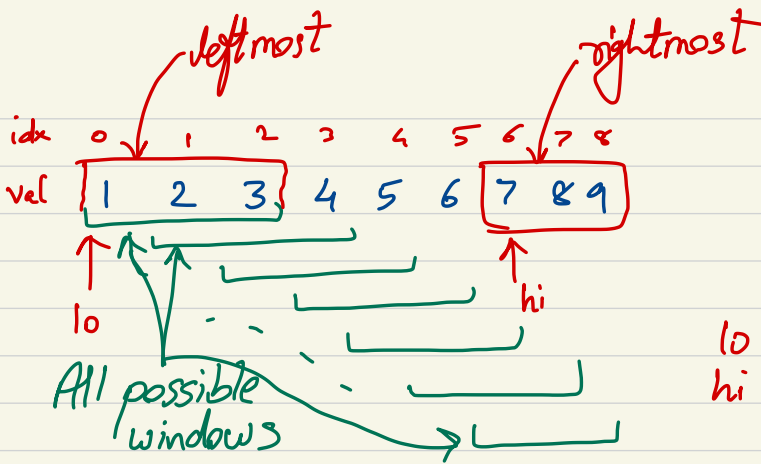 leftmost rightmost
idx 0 1 2 3 4 5 6 7 8
val 1 2 3 4 5 6 7 8 9
lo hi
lo
hi
All possible
windows